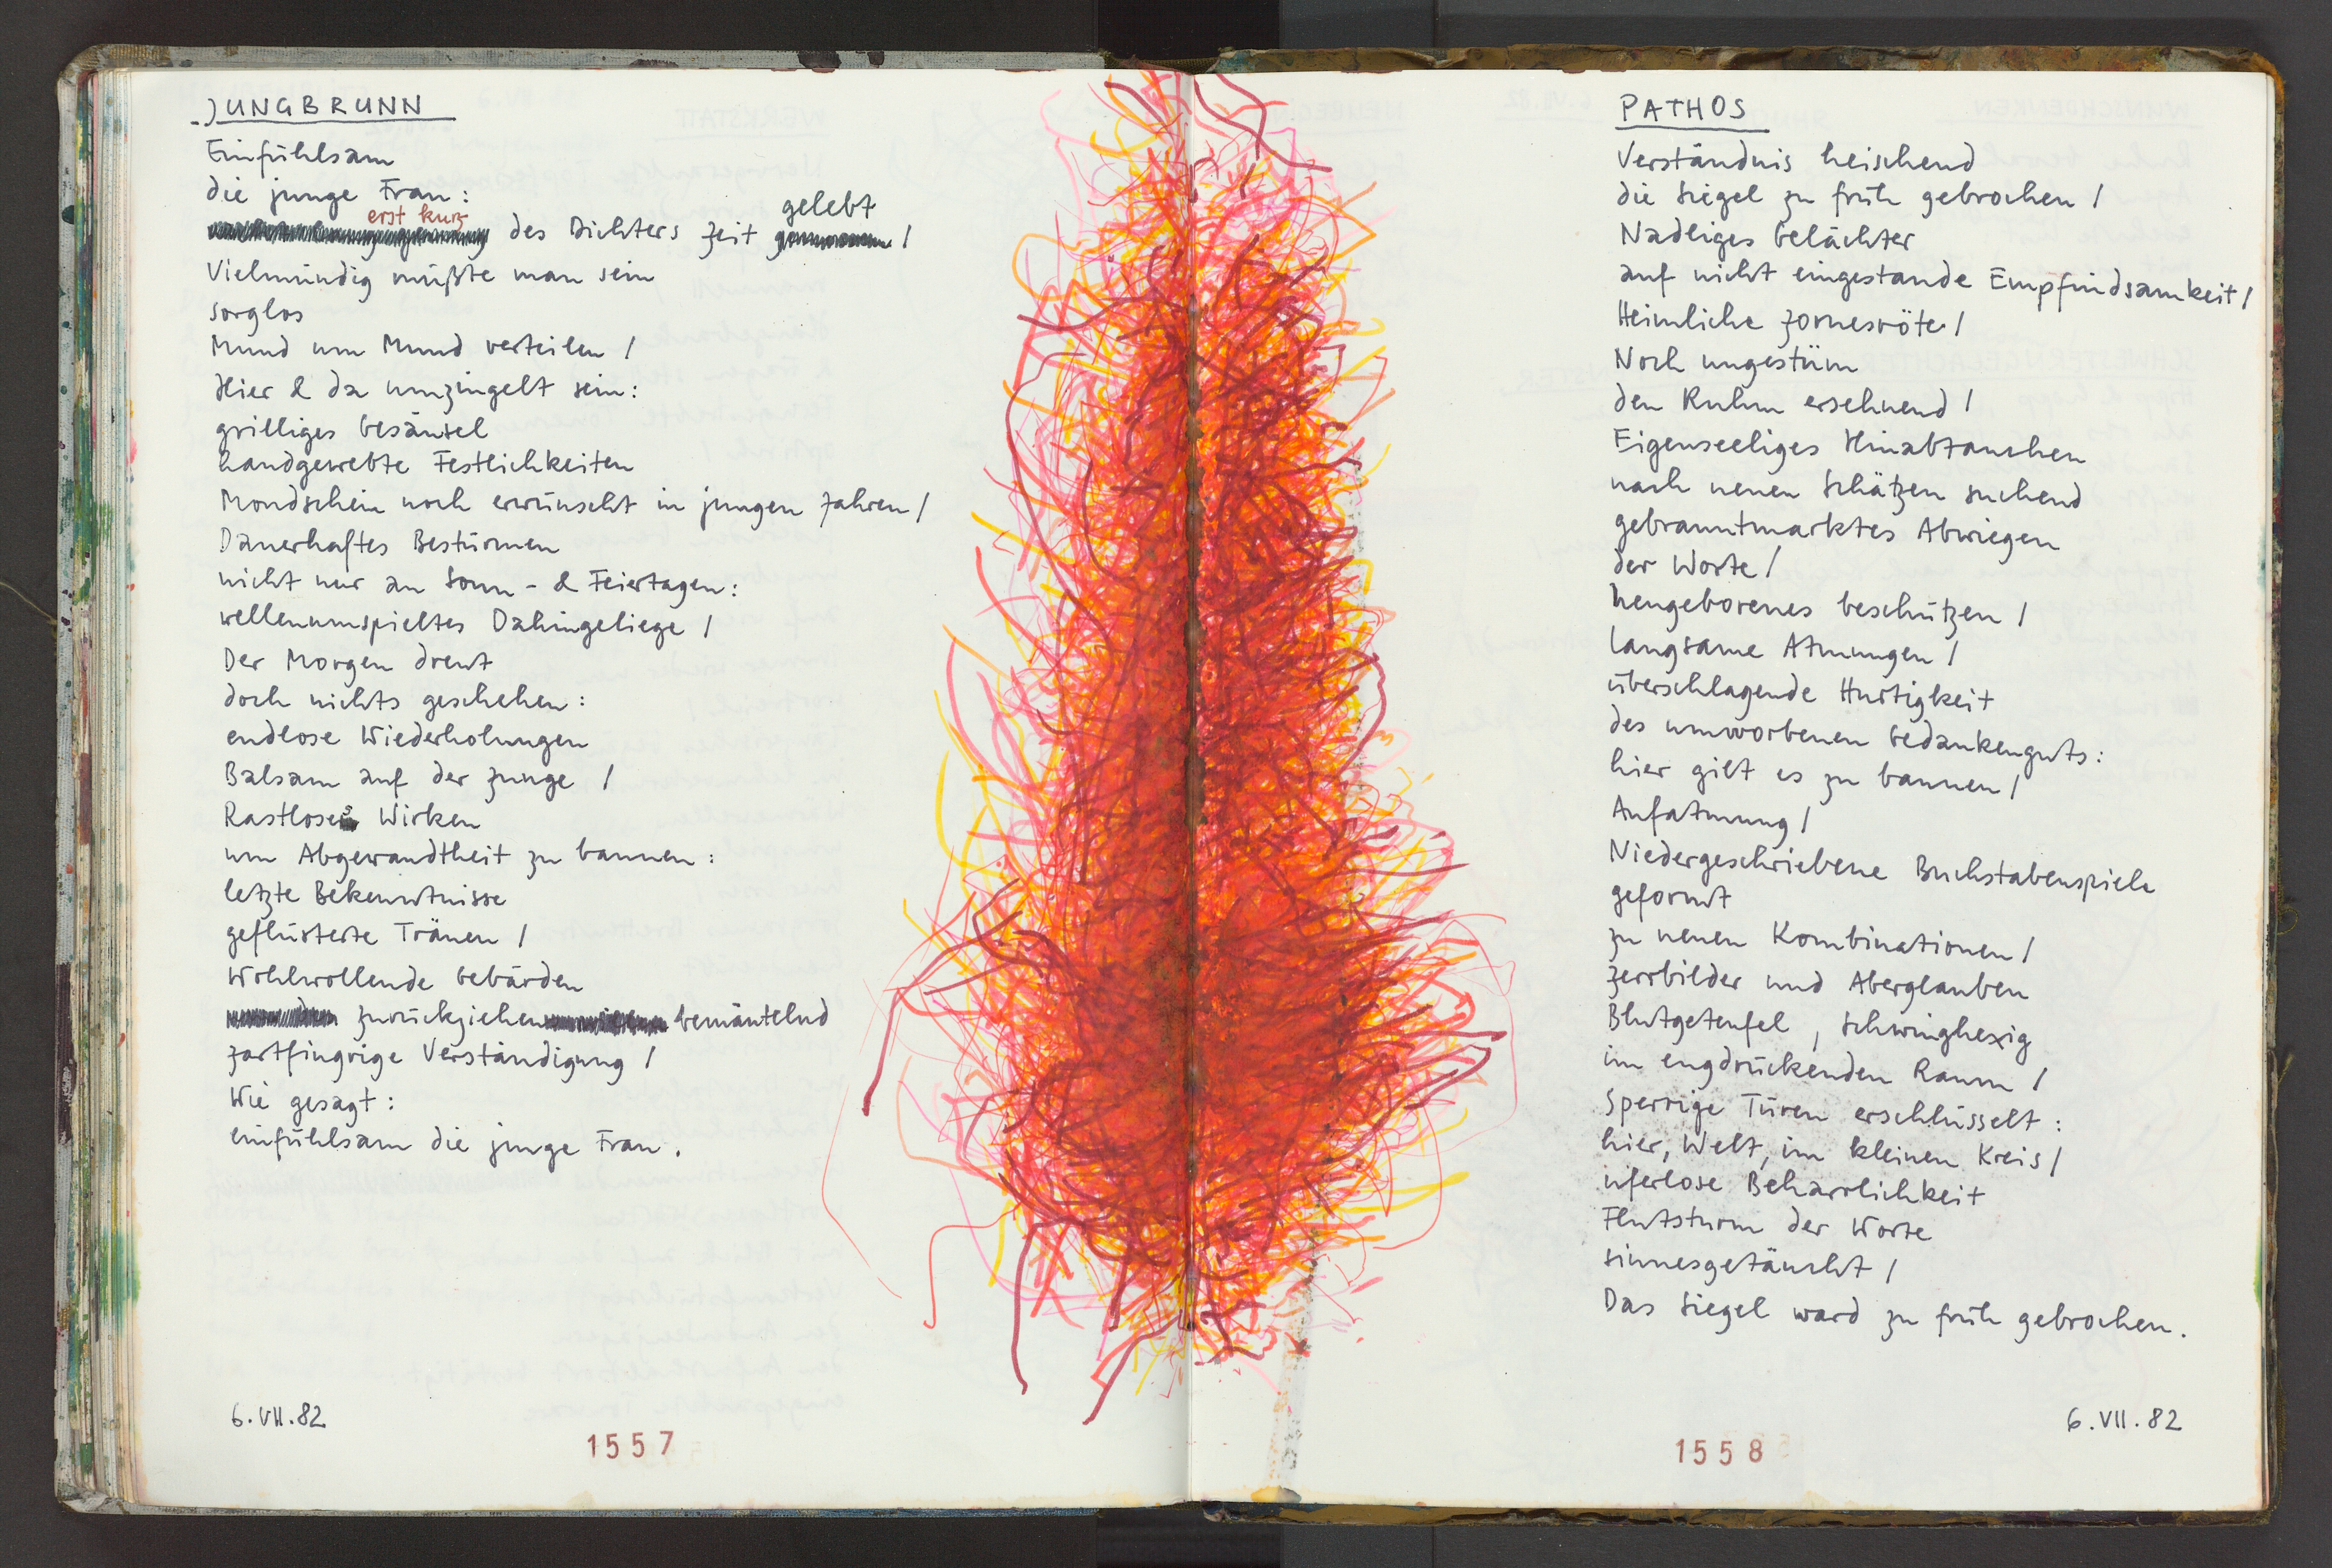 JUNGBRUNN
Einfühlsam
die junge Frau:
erst kurz des Dichters Zeit gelebt /
Vielmündig müßte man sein
sorglos
Mund um Mund verteilen /
Hier & da umzingelt sein:
grilliges Gesäusel
handgewebte Festlichkeiten
Mondschein noch erwünscht in jungen Jahren /
Dauerhaftes Bestürmen
nicht nur an Sonn- & Feiertagen:
wellenumspieltes Dahingeliege /
Der Morgen
doch nichts geschehen:
endlose Wiederholungen
Balsam auf der Zunge /
Rastloses Wirken
um Abgewandtheit zu bannen:
letzte Bekenntnisse
geflüsterte Tränen /
Wohlwollende Gebärden
zurückziehen bemäntelnd
zartfingrige Verständigung /
Wie gesagt:
einfühlsam die junge Frau.
6.VII.82
1557
PATHOS
Verständnis heischend
die Siegel zu früh gebrochen /
Nadliges Gelächter
auf nicht eingestande Empfindsamkeit /
Heimliche Zornesröte /
Noch ungestüm
den Ruhm ersehnend /
Eigenseeliges Hinabtauchen
nach neuen Schätzen suchend
gebranntmarktes Abwiegen
der Worte /
Neugeborenes beschützen /
Langsame Atmungen /
überschlagende Hurtigkeit
des umworbenen Gedankenguts:
hier gilt es zu bannen /
Aufatmung /
Niedergeschriebene Buchstabenspiele
geformt
zu neuen Kombinationen /
Zerrbilder und Aberglauben
Blutgeteufel, schwinghexig
im engdrückenden Raum /
Sperrige Türen erschlüsselt:
hier, Welt, im kleinen Kreis /
uferlose Beharrlichkeit
Flutsturm der Worte
sinnesgetäuscht /
Das Siegel ward zu früh gebrochen.
6.VII.82
1558